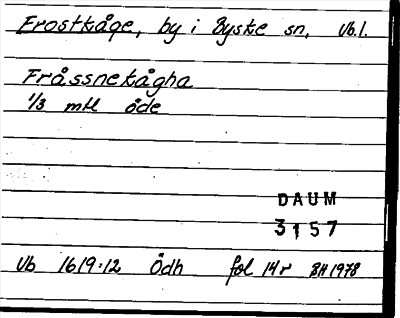 Frostkåge, by i Byske sn. Vb.l.
Fråssnekågha
1/3 mtl öde
DAUM
3157
Vb 1619:12 Ödh fol 14r BH 1978